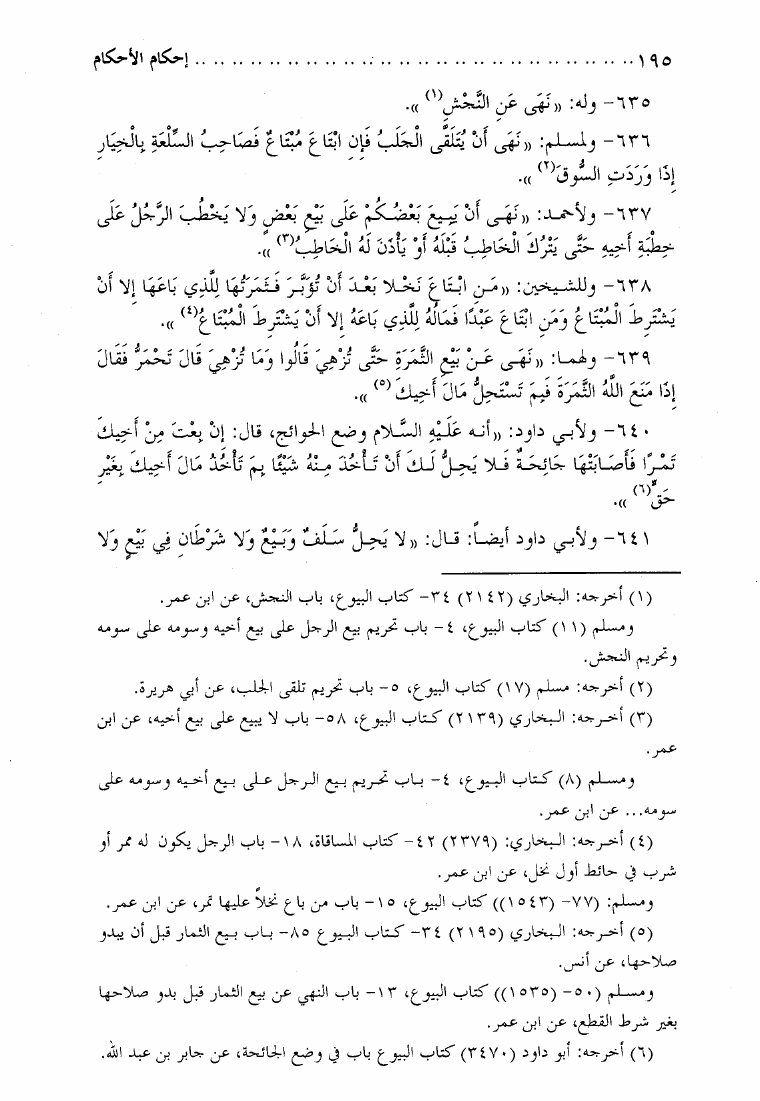 ١٩٥ .................................................. إحكام الأحكام
٦٣٥- وله: «نَهَى عَنِ النَّجْشِ(١)».
٦٣٦- ولمسلم: «نَهَى أَنْ يُتَلَقَّى الْجَلَبُ فَإِنِ ابْتَاعَ مُبْتَاعٌ فَصَاحِبُ السِّلْعَةِ بِالْخِيَارِ
إِذَا وَرَدَتِ السُّوقَ(٢)».
٦٣٧- ولأحمد: «نَهَى أَنْ يَبِيعَ بَعْضُكُمْ عَلَى بَيْعِ بَعْضٍ وَلا يَخْطُبَ الرَّجُلُ عَلَى
خِطْبَةِ أَخِيهِ حَتَّى يَتْرُكَ الْخَاطِبُ قَبْلَهُ أَوْ يَأْذَنَ لَهُ الْخَاطِبُ(٣)».
٦٣٨- وللشيخين: «مَنِ ابْتَاعَ نَخْلا بَعْدَ أَنْ تُؤَبَّرَ فَثَمَرَتُهَا لِلَّذِي بَاعَهَا إِلا أَنْ
يَشْتَرِطَ الْمُبْتَاعُ وَمَنِ ابْتَاعَ عَبْدًا فَمَالُهُ لِلَّذِي بَاعَهُ إِلا أَنْ يَشْتَرِطَ الْمُبْتَاعُ(٤)».
٦٣٩- ولهما: «نَهَى عَنْ بَيْعِ الثَّمَرَةِ حَتَّى تُزْهِيَ قَالُوا وَمَا تُزْهِيَ قَالَ تَحْمَرُّ فَقَالَ
إِذَا مَنَعَ اللَّهُ الثَّمَرَةَ فَبِمَ تَسْتَحِلُّ مَالَ أَخِيكَ(٥)».
٦٤٠- ولأبي داود: «أنه عَلَيْهِ السَّلام وضع الحوائج، قال: إِنْ بِعْتَ مِنْ أَخِيكَ
تَمْرًا فَأَصَابَتْهَا جَائِحَةٌ فَلا يَحِلُّ لَكَ أَنْ تَأْخُذَ مِنْهُ شَيْئًا بِمَ تَأْخُذُ مَالَ أَخِيكَ بِغَيْرِ
حَقٍّ(٦)».
٦٤١- ولأبي داود أيضاً: قال: «لا يَحِلُّ سَلَفٌ وَبَيْعٌ وَلا شَرْطَانِ فِي بَيْعٍ وَلا
(١) أخرجه: البخاري (٢١٤٢) ٣٤- كتاب البيوع، باب النجش، عن ابن عمر.
ومسلم (١١) كتاب البيوع، ٤- باب تحريم بيع الرجل على بيع أخيه وسومه على سومه
وتحريم النجش.
(٢) أخرجه: مسلم (١٧) كتاب البيوع، ٥- باب تحريم تلقى الجلب، عن أبي هريرة.
(٣) أخرجه: البخاري (٢١٣٩) كتاب البيوع، ٥٨- باب لا يبيع على بيع أخيه، عن ابن
عمر.
ومسلم (٨) كتاب البيوع، ٤- باب تحريم بيع الرجل على بيع أخيه وسومه على
سومه... عن ابن عمر.
(٤) أخرجه: البخاري: (٢٣٧٩) ٤٢- كتاب المساقاة، ١٨- باب الرجل يكون له ممر أو
شرب في حائط أول نخل، عن ابن عمر.
ومسلم: (٧٧- (١٥٤٣)) كتاب البيوع، ١٥- باب من باع نخلاً عليها تمر، عن ابن عمر.
(٥) أخرجه: البخاري (٢١٩٥) ٣٤- كتاب البيوع ٨٥- باب بيع الثمار قبل أن يبدو
صلاحها، عن أنس.
ومسلم (٥٠- (١٥٣٥)) كتاب البيوع، ١٣- باب النهي عن بيع الثمار قبل بدو صلاحها
بغير شرط القطع، عن ابن عمر.
(٦) أخرجه: أبو داود (٣٤٧٠) كتاب البيوع باب في وضع الجائحة، عن جابر بن عبد الله.